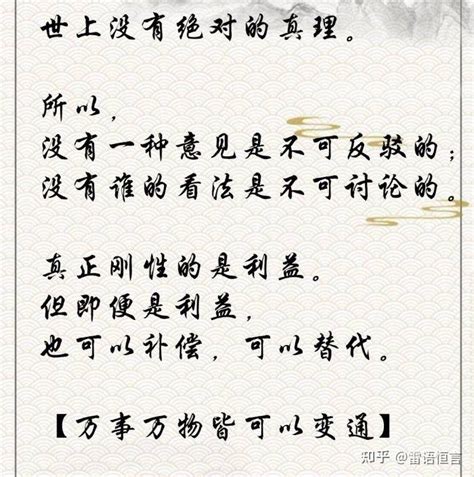 世上没有绝对的真理。
所以，
没有一种意见是不可反驳的；
没有谁的看法是不可讨论的。
真正刚性的是利益。
但即便是利益，
也可以补偿，可以替代。
【万事万物皆可以变通】
知乎 @雷语恒言